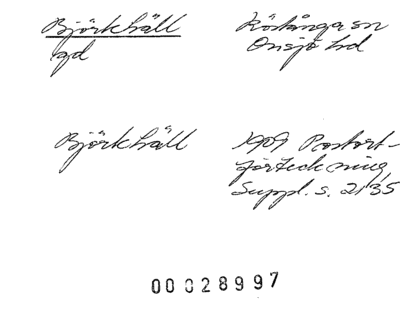 Björkhäll
gd
Röstånga sn
Onsjö hd
Björkhäll
1909 Postort-
förteckning,
Suppl. s. 2135
00028997